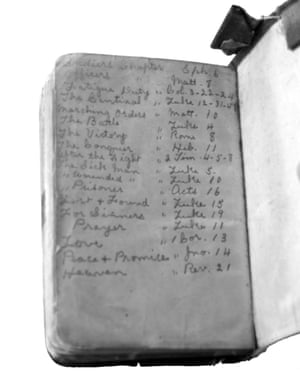 Soldiers Chapter Eph. 6
Officers " Matt. 8
Fatigue Duty " Col. 3-22-24
The Sentinal " Luke 12-31-
Marching Orders " Matt. 10
The Battle " Luke 4
The Victory " Rom 8
The Conquer " Heb. 11
After the Fight " 2 Tim-4-5-8
The Sick Man " Luke 5-
" Wounded " " Luke 10
" Prisoner " Acts 16
Lost & Found " Luke 15
For Sinners " Luke 19
Prayer " Luke 11
Love " 1 Cor. 13
Peace & Promice " Jno. 14
Heaven " Rev. 21